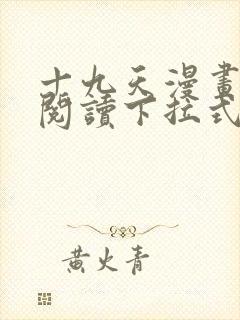 十九天漫畫
閱讀下拉式
黄火青